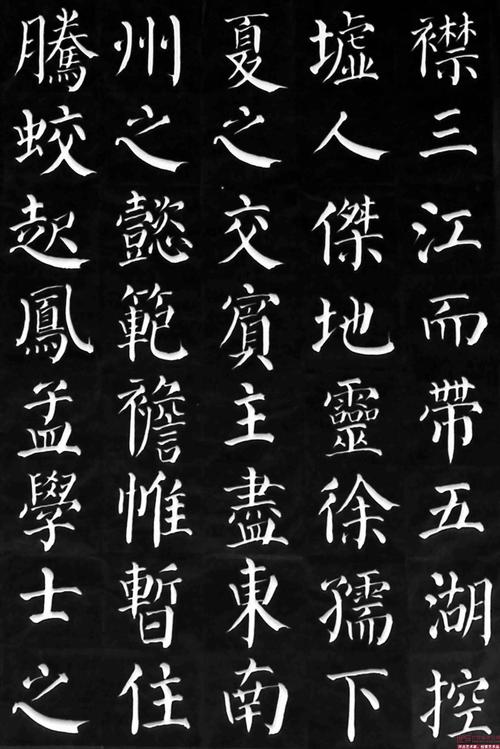 襟三江而帶五湖控
墟人傑地靈徐孺下
夏之交賓主盡東南
州之懿範襜帷暫住
騰蛟起鳳孟學士之